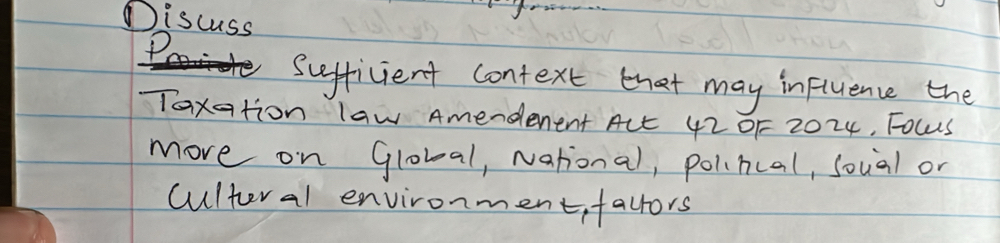 Discuss
Provide Sufficient context that may influence the
Taxation law Amendenent Act 42 OF 2024. Focus
more on Global, National, political, Social or
Cultural environment, factors